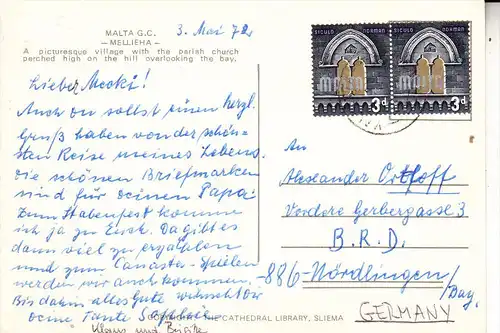 MALTA G.C.
—MELLIEHA—
A picturesque village with the parish church
perched high on the hill overlooking the bay.
3. Mai 72
Lieber Mecki!
Auch du sollst einen herzl.
Gruß haben von der schön-
sten Reise meines Lebens.
Die schönen Briefmarken
sind für Deinen Papa.
Zum Stabenfest komme
ich ja zu Euch. Da gibt es
dann viel zu erzählen
und zum Canaster-Spielen
werden wir auch kommen.
Bis dahin alles Gute wünscht Dir
deine Tante
Klaus und
THE CATHEDRAL LIBRARY, SLIEMA
SICULO NORMAN
MALTA
3d
SICULO NORMAN
MALTA
3d
An
Alexander Orthoff
Vordere Gerbergasse 3
B.R.D.
-886-Nördlingen/
Bay.
GERMANY